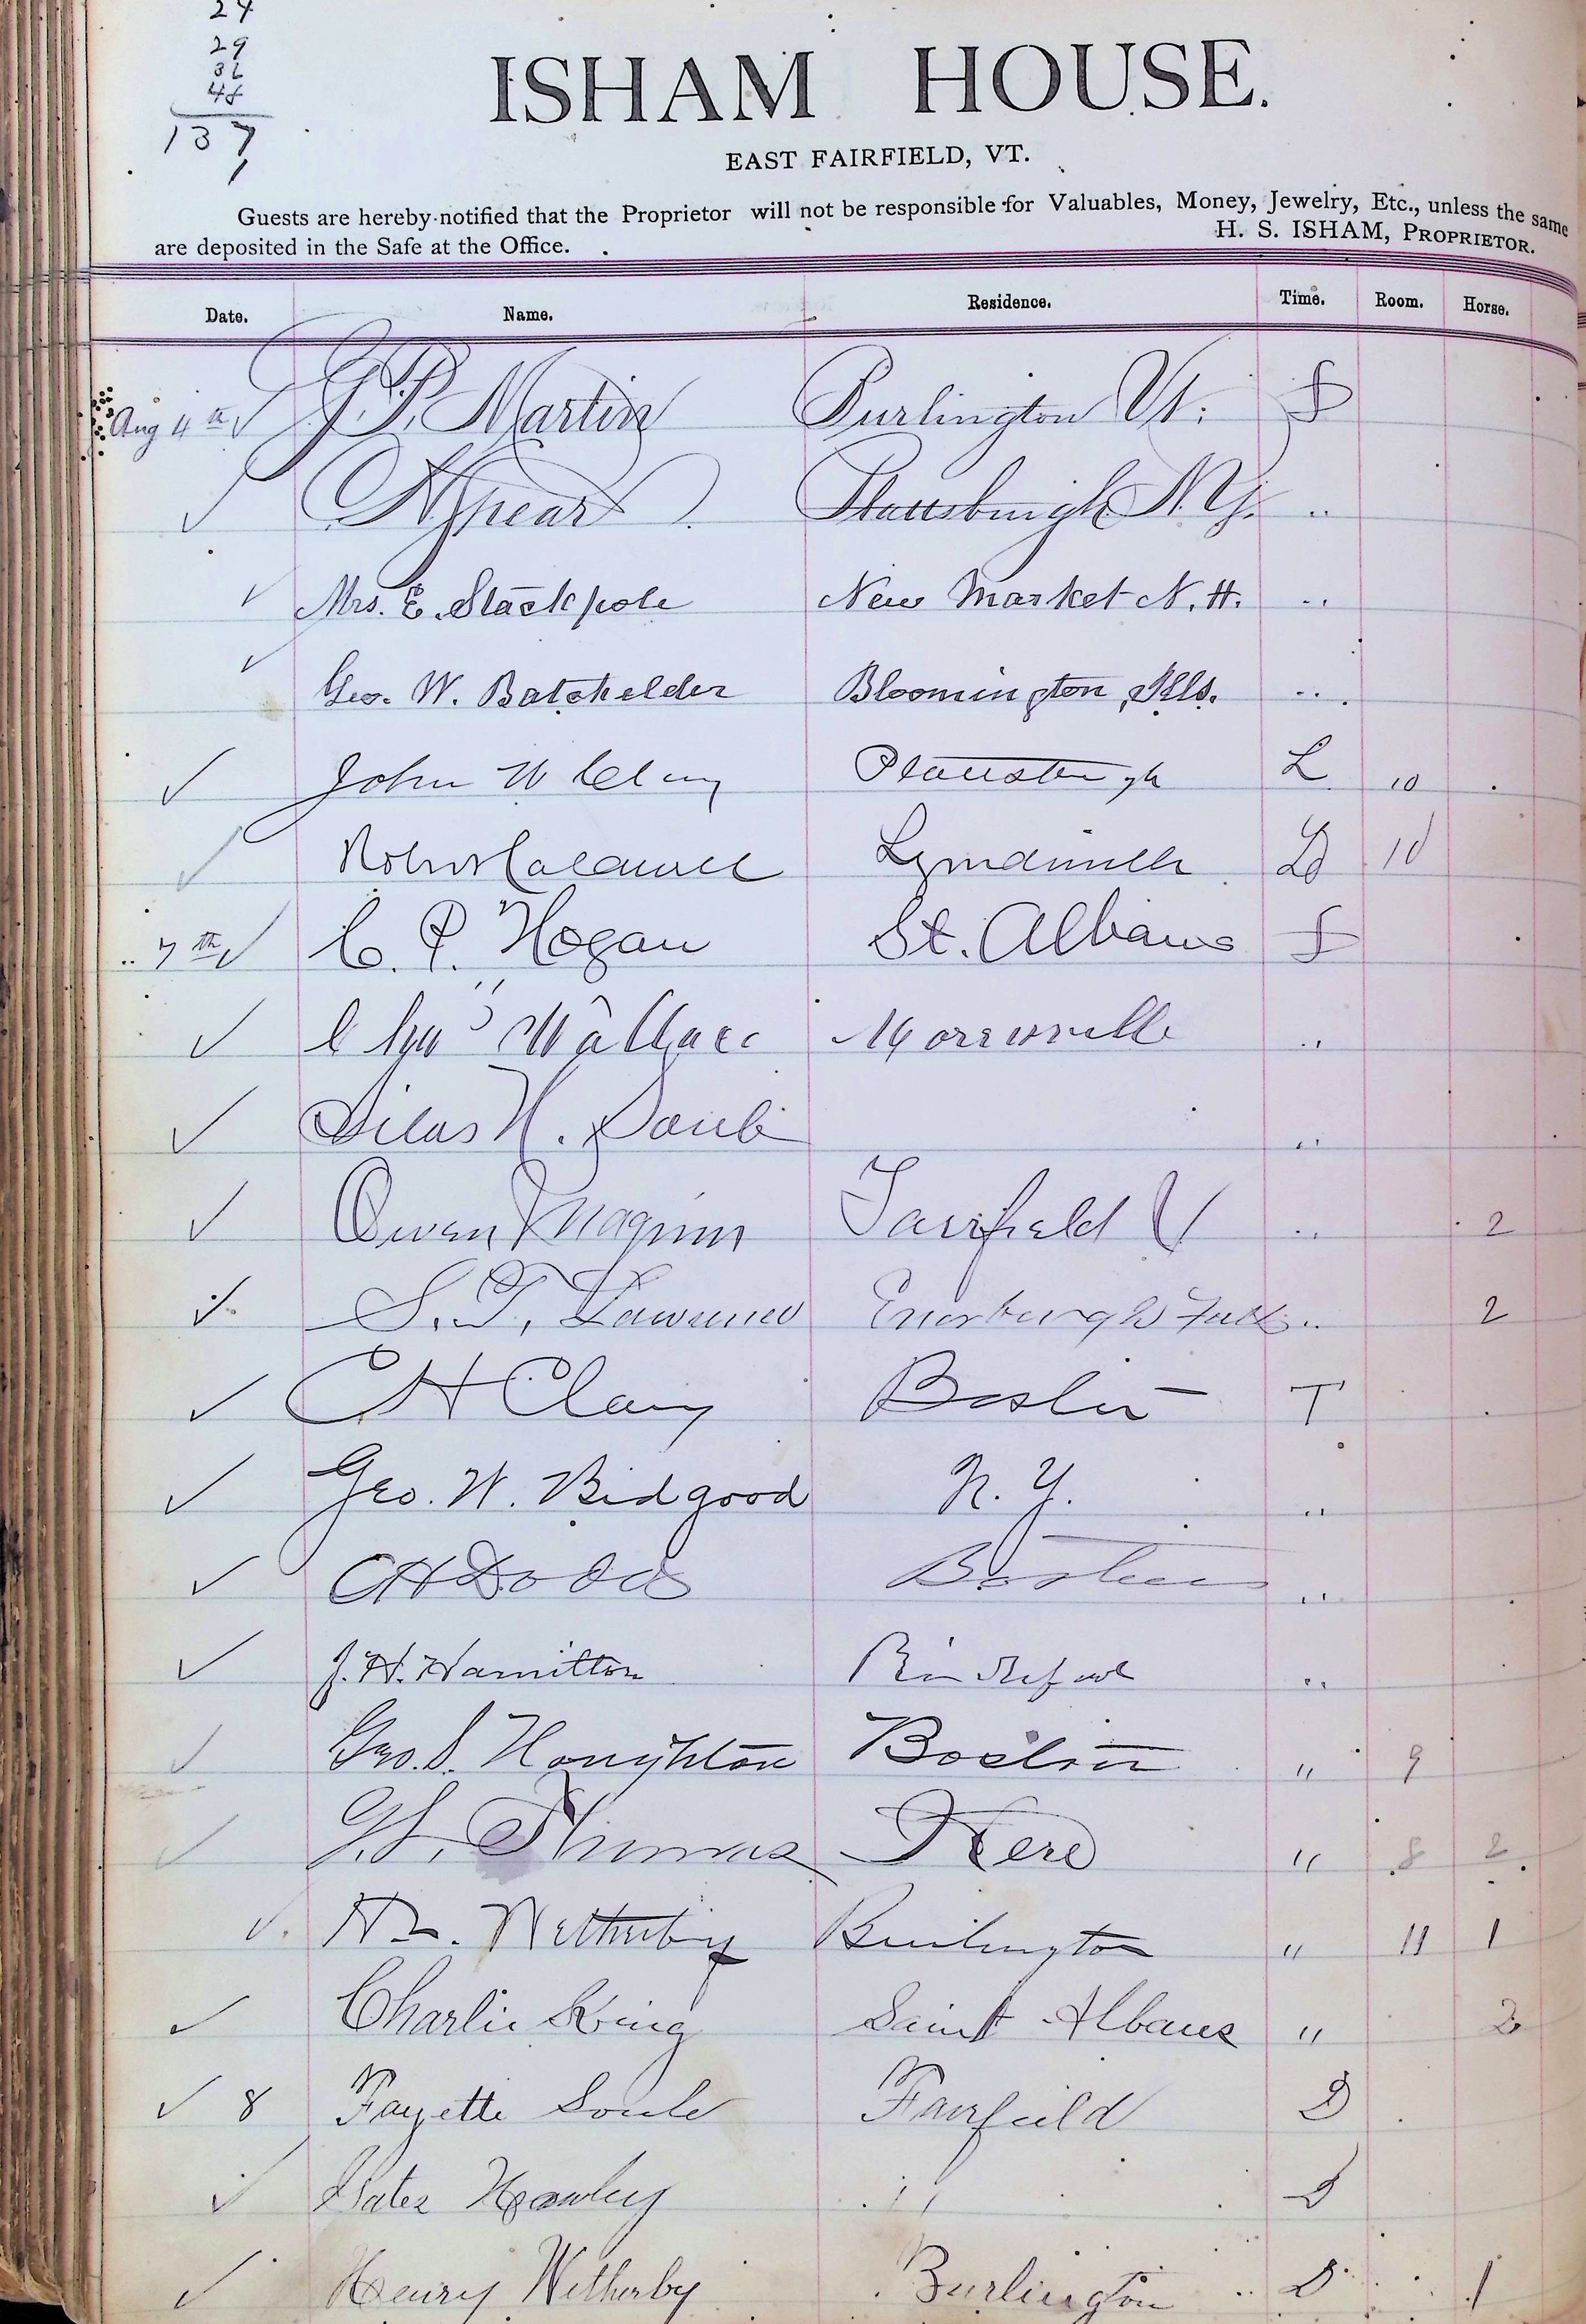 24
29
32
48
137
1
ISHAM HOUSE.
EAST FAIRFIELD, VT.
Guests are hereby notified that the Proprietor will not be responsible for Valuables, Money, Jewelry, Etc., unless the same
are deposited in the Safe at the Office.
H. S. ISHAM, PROPRIETOR.
Date. Name. Residence. Time. Room. Horse.
Aug 4th ✓ G. P. Martin Burlington Vt. S
✓ Spear Plattsburgh N.Y. "
✓ Mrs. E. Stackpole New Market N.H. "
✓ Geo. W. Batchelder Bloomington, Ills. "
✓ John W Clary Plattsburgh L 10
✓ Lyndonville D 10
" 7th ✓ C. P. Hogan St. Albans S
✓ Chas Wallace Morrisville "
✓ Silas H. Soule "
✓ Owen Maginn Fairfield V " 2
✓ S. T. Lawrence Enosburgh Falls " 2
✓ C H Clary Boston T
✓ Geo. W. Bidgood N. Y. "
✓ C H Dodds Boston "
✓ J. H. Hamilton "
✓ Geo. S. Houghton Boston " 9
✓ G. S. Thomas Here " 8 2
✓ H L. Wetherby Burlington " 11 1
✓ Charlie King Saint Albans " 2
✓ 8 Fayette Soule Fairfield D
✓ Hawley " D
✓ Henry Wetherby Burlington D 1